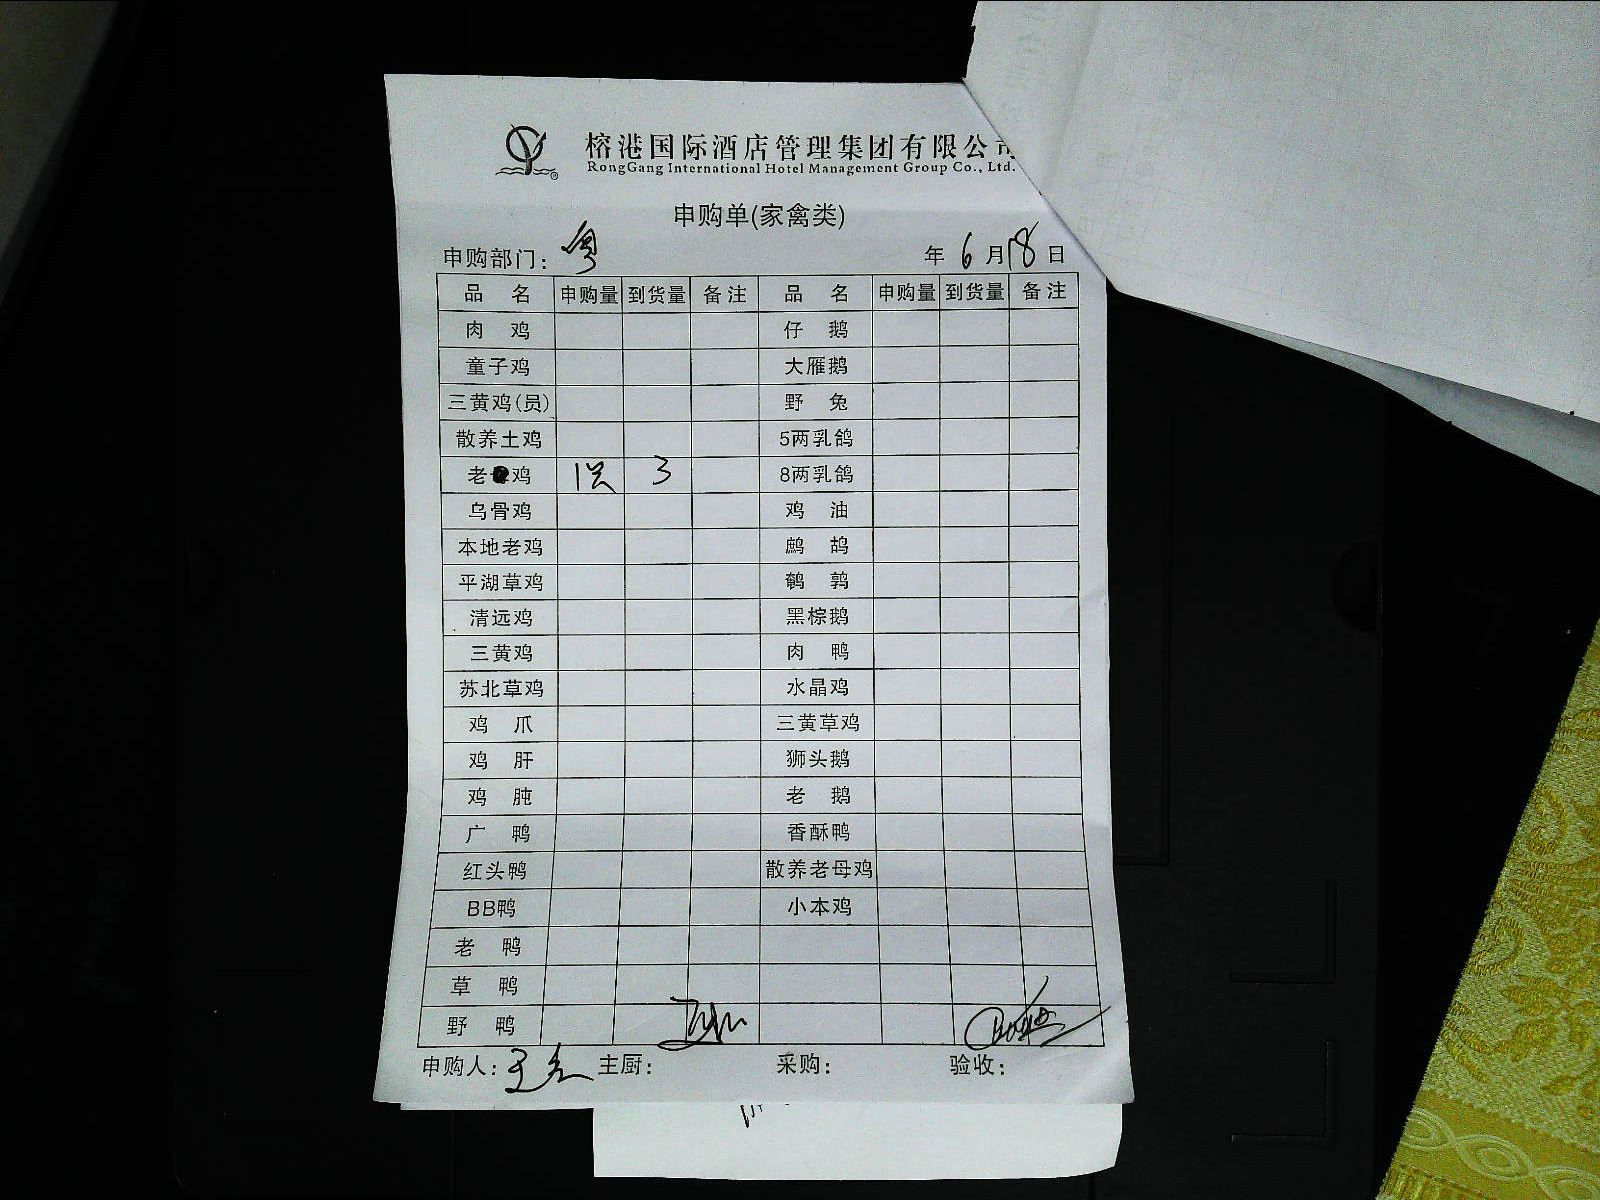 榕港国际酒店管理集团有限公司
RongGang International Hotel Management Group Co., Ltd.
申购单(家禽类)
申购部门: 粤 年 6 月 18 日
品 名 申购量 到货量 备注 品 名 申购量 到货量 备注
肉 鸡 仔 鹅
童子鸡 大雁鹅
三黄鸡(员) 野 兔
散养土鸡 5两乳鸽
老 鸡 1只 3 8两乳鸽
乌骨鸡 鸡 油
本地老鸡 鹧 鸪
平湖草鸡 鹌 鹑
清远鸡 黑棕鹅
三黄鸡 肉 鸭
苏北草鸡 水晶鸡
鸡 爪 三黄草鸡
鸡 肝 狮头鹅
鸡 肫 老 鹅
广 鸭 香酥鸭
红头鸭 散养老母鸡
BB鸭 小本鸡
老 鸭
草 鸭
野 鸭
申购人: 主厨: 采购: 验收: